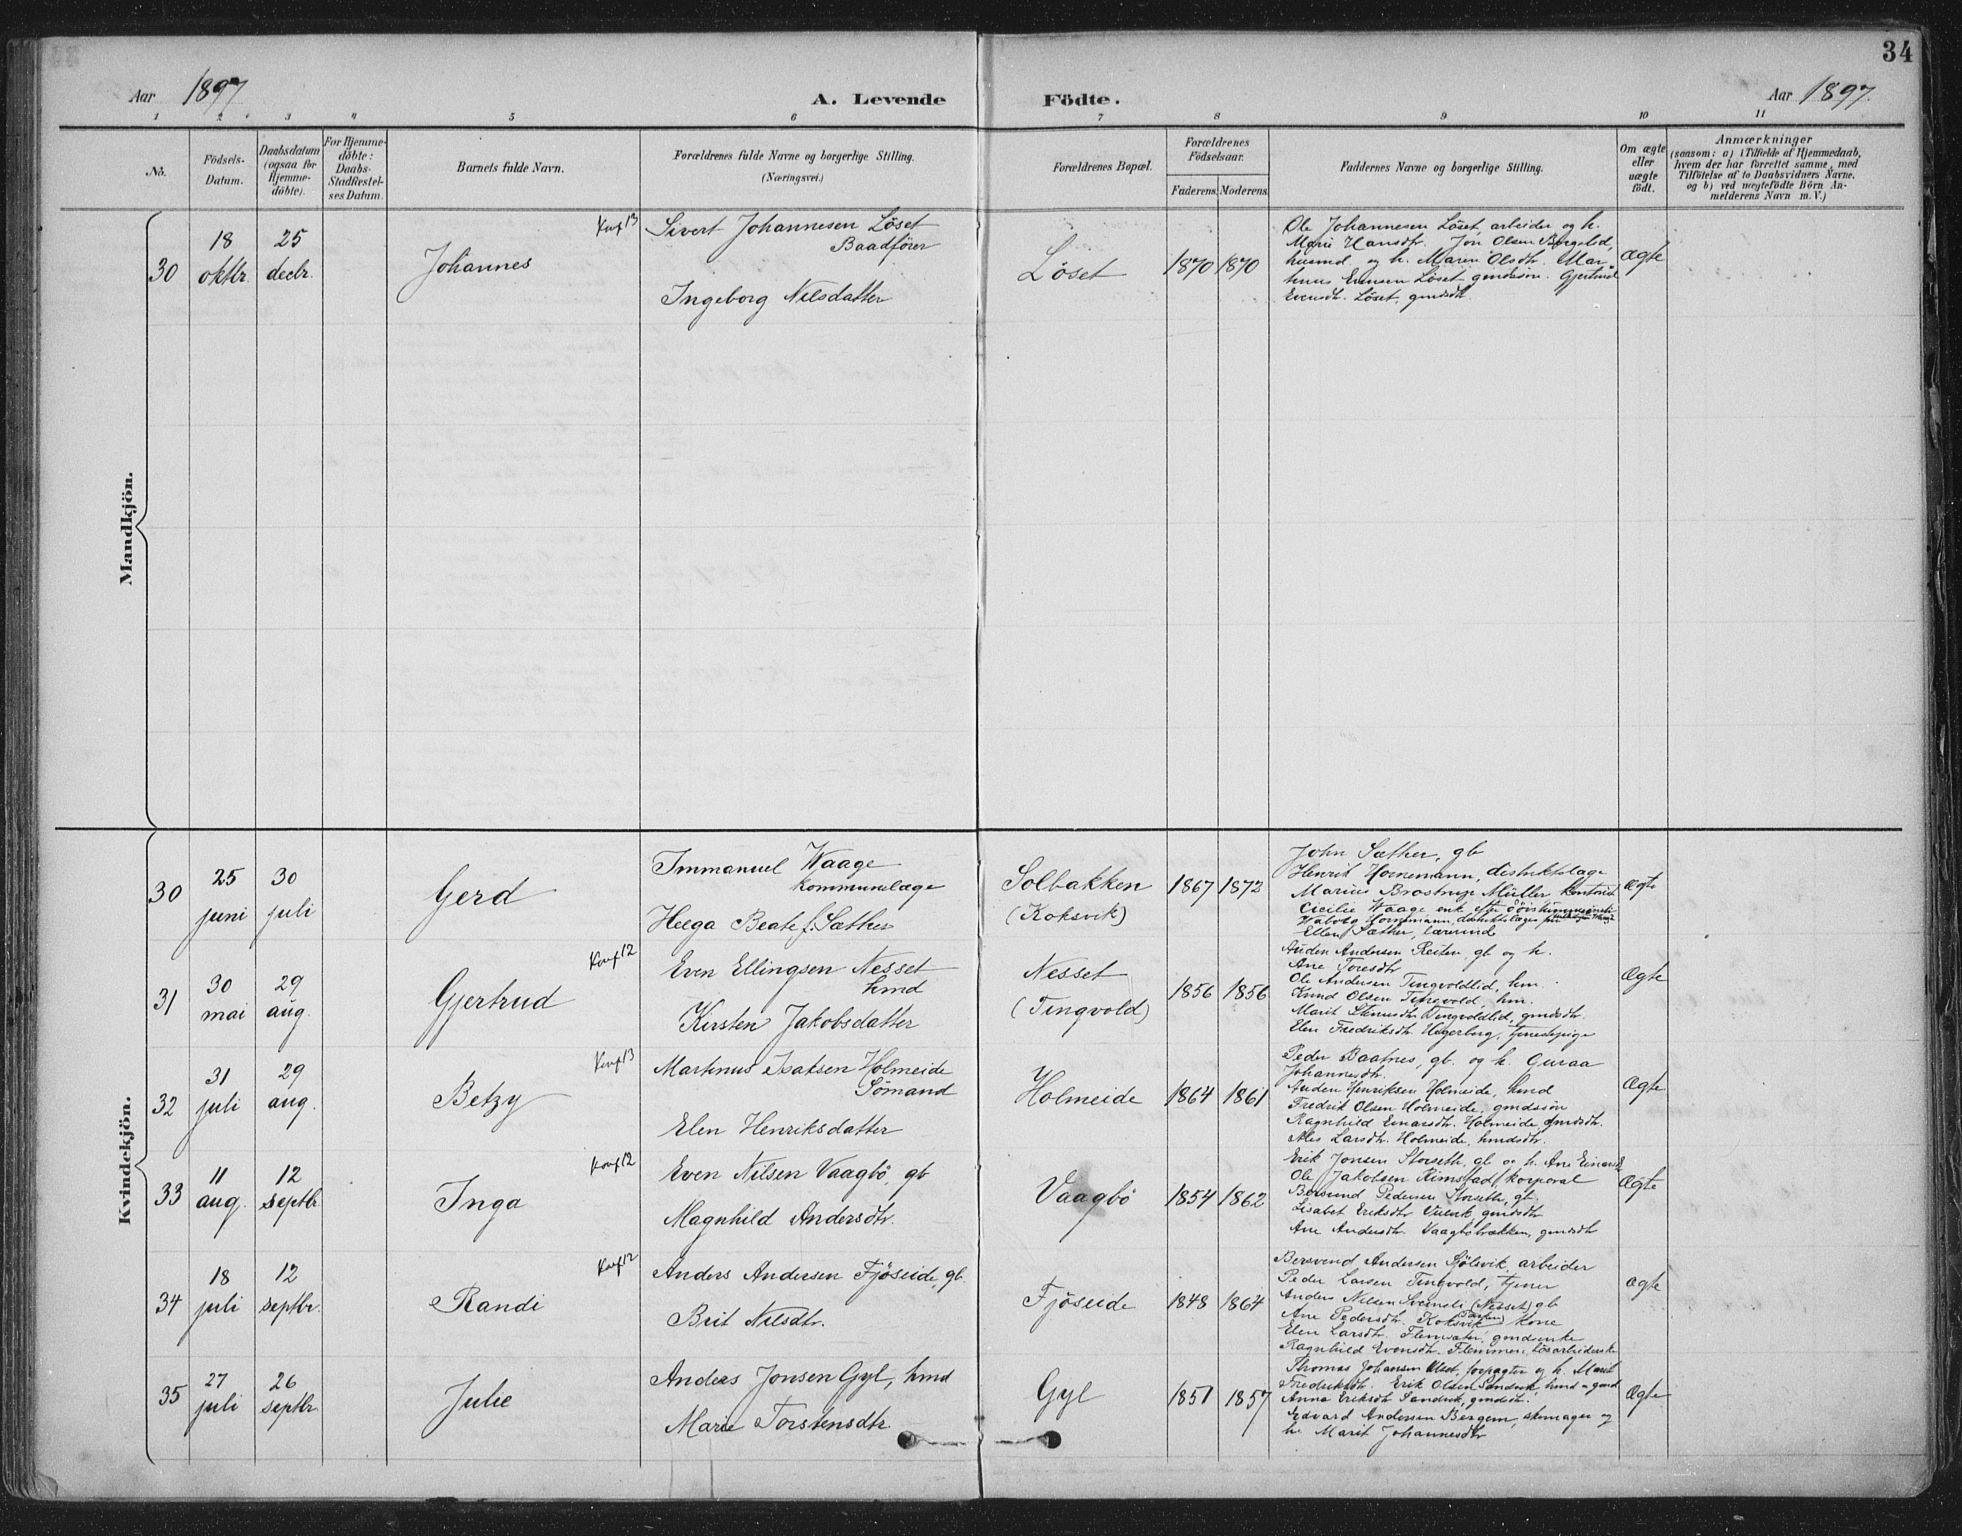 34
Aar 1897
A. Levende
Födte.
Aar 1897.
1 2 3 4 5 6 7 8 9 10 11
No.
Födsels-
Datum.
Daabsdatum
(ogsaa for
Hjemme-
döbte).
For Hjemme-
döbte:
Daabs-
Stadfæstel-
ses Datum.
Barnets fulde Navn.
Forældrenes fulde Navne og borgerlige Stilling.
(Næringsvei.)
Forældrenes Bopæl.
Forældrenes
Födselsaar.
Faderens. Moderens.
Faddernes Navne og borgerlige Stilling.
Om ægte
eller
uægte
födt.
Anmærkninger
(saasom: a) i Tilfælde af Hjemmedaab,
hvem der har forrettet samme, med
Tilföielse af to Daabsvidners Navne.
og b) ved uægtefödte Börn An-
melderens Navn m. V.)
Mandkjön.
30
18
oktbr.
25
decbr.
Johannes
Sivert Johannesen Löset
Baadförer
Ingeborg Nilsdatter
Löset
1870 1870
Ole Johannesen Löset, arbeider og h.
Marie Hansdtr. Jon Olsen
husmd. og h. Maren Olsdtr.
Löset, gmdsön. Gjertrud
Evensdtr. Löset, gmdsdtr.
Ægte
Kvindekjön.
30
25
juni
30
juli
Gerd
Immanuel Waage
Kommunelæge
Helga Beate f. Sæther
Solbakken
(Koksvik)
1867 1872
John Sæther, gb
Henrik Hornemann, distriktslæge
Marius Brostrup Müller
Cicilie Waage enke efter
Hornemann,
Ellen Sæther, lærerinde
Ægte
31
30
mai
29
aug.
Gjertrud
Even Ellingsen Nesset
hmd
Kirsten Jakobsdatter
Nesset
(Tingvold)
1856 1856
Auden Andersen Reiten gb og h.
Ane Toresdtr
Ole Andersen Tingvoldlid, hm.
Knud Olsen Tingvold, hm.
Marit Tingvoldlid, gmdsdtr.
Elen Fredriksdtr. Hegerberg, tjenestepige
Ægte
32
31
juli
29
aug.
Betzy
Martinus Isaksen Holmeide
Sömand
Elen Henriksdatter
Holmeide
1864 1861
Peder Baafnes, gb. og h. Guraa
Johannesdtr.
Auden Henriksen Holmeide, hmd
Fredrik Olsen Holmeide, gmdssön
Ragnhild Einarsdtr. Holmeide, gmdsdtr.
Larsdtr. Holmeide, hmdsdtr.
Ægte
33
11
aug.
12
septbr
Inga
Even Nilsen Vaagbö, gb
Magnhild Andersdtr.
Vaagbö
1854 1862
Erik Jonsen Storseth, gb og h. Ane
Ole Jakobsen Rimstad, korporal
Pedersen Storseth, gb.
Lisabet Eriksdtr gmdsdtr
Ane Andersdtr. Vaagböbrækken, gmdsdtr
Ægte
34
18
juli
12
septbr.
Randi
Anders Andersen Fjöseide, gb.
Brit Nilsdtr.
Fjöseide
1848 1864
Bersvend Andersen Sjölsvik, arbeider
Peder Larsen Tingvold, tjener
Anders Nilsen (Nesset) gb
Ane Pedersdtr. Koksvik kone
Elen Larsdtr. Flemsæter, gmdsenke
Ragnhild Evensdtr. Flemmen, lösarbeiderske
Ægte
35
27
juli
26
septbr.
Julie
Anders Jonsen Gyl, hmd
Marie Torstensdtr
Gyl
1851 1857
Thomas Johansen forpagter og h. Marit
Fredriksdtr. Erik Olsen Sandvik, hmd
Anna Eriksdtr Sandvik, gmdsdtr.
Edvard Andersen Bergem, skomager og
h. Marit Johannesdtr
Ægte